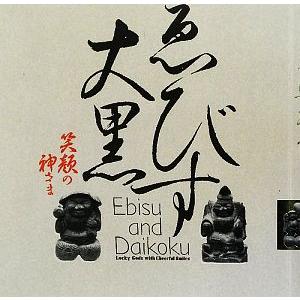 ゑびす
大黒
笑顔の
神さま
Ebisu
and
Daikoku
Lucky Gods with Cheerful Smiles